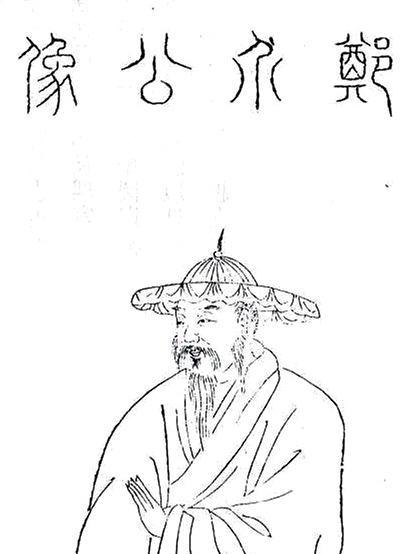 鄭介公像